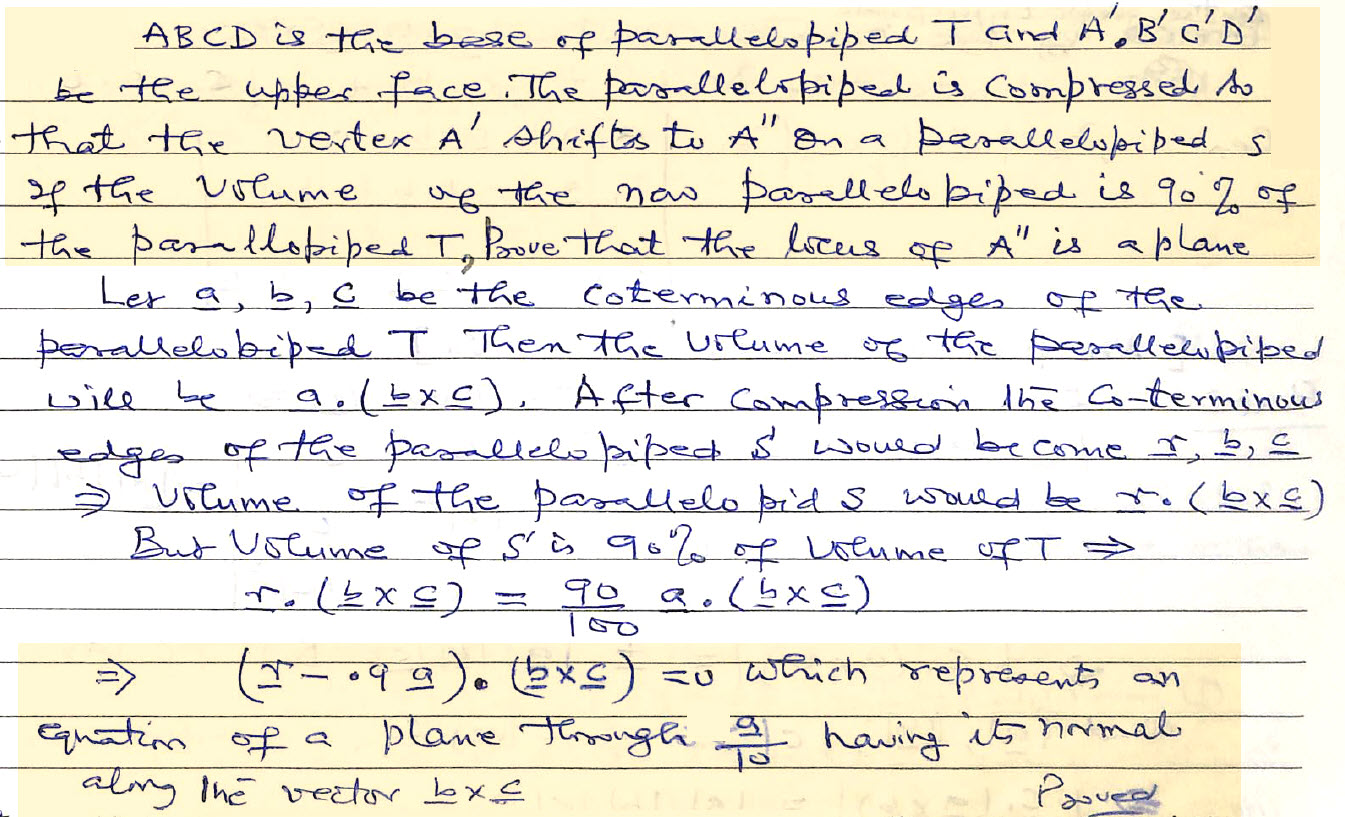 ABCD is the base of parallelopiped T and A', B' C' D'
be the upper face. The parallelopiped is compressed so
that the vertex A' shifts to A'' on a parallelopiped s
If the volume of the new parallelo piped is 90% of
the parallopiped T, Prove that the locus of A'' is a plane
Let a, b, c be the coterminous edges of the
parallelopiped T Then the volume of the parallelopiped
will be a.(b×c). After compression the Co-terminous
edges of the parallelopiped S would become r, b, c
⇒ Volume of the parallelo pid S would be r.(b×c)
But Volume of S is 90% of Volume of T ⇒
r.(b×c) = 90/100 a.(b×c)
⇒ (r - .9 a).(b×c) =0 which represents an
equation of a plane through 9/10 having its normal
along the vector b×c Proved